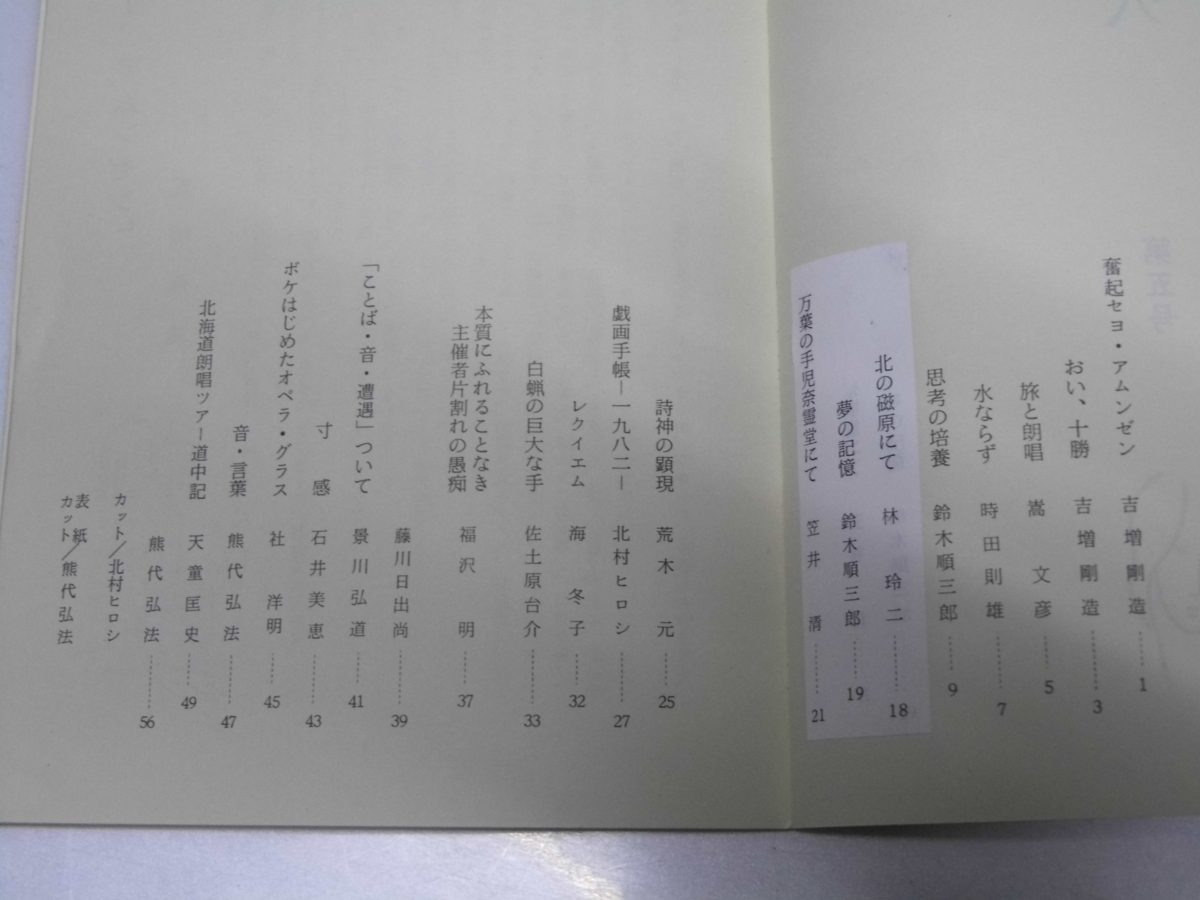 奮起セヨ・アムンゼン 吉増剛造 ……… 1
おい、十勝 吉増剛造 ……… 3
旅と朗唱 嵩文彦 ……… 5
水ならず 時田則雄 ……… 7
思考の培養 鈴木順三郎 ……… 9
北の磁原にて 林玲二 ……… 18
夢の記憶 鈴木順三郎 ……… 19
万葉の手児奈霊堂にて 笠井清 ……… 21
詩神の顕現 荒木元 ……… 25
戯画手帳―一九八二― 北村ヒロシ ……… 27
レクイエム 海冬子 ……… 32
白蝋の巨大な手 佐土原台介 ……… 33
本質にふれることなき
主催者片割れの愚痴 福沢明 ……… 37
藤川日出尚 ……… 39
「ことば・音・遭遇」ついて 景川弘道 ……… 41
寸感 石井美恵 ……… 43
ボケはじめたオペラ・グラス 社洋明 ……… 45
音・言葉 熊代弘法 ……… 47
北海道朗唱ツアー道中記 天童匡史 ……… 49
熊代弘法 ……… 56
カット/北村ヒロシ
表紙
カット/熊代弘法
第五号